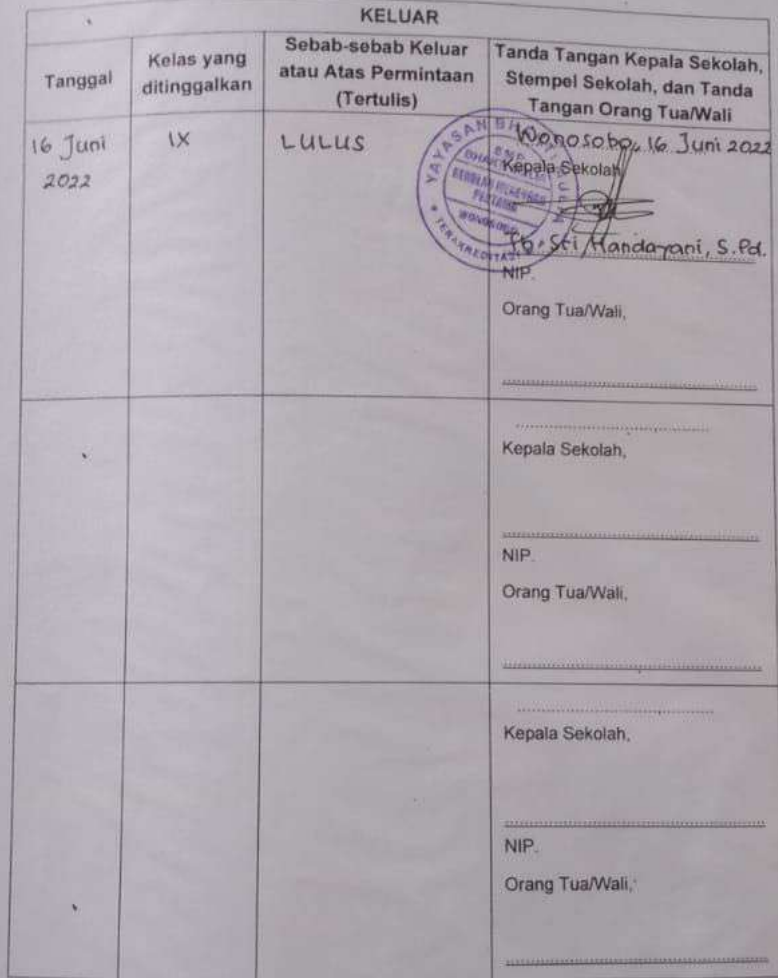 KELUAR
Tanggal
Kelas yang
ditinggalkan
Sebab-sebab Keluar
atau Atas Permintaan
(Tertulis)
Tanda Tangan Kepala Sekolah,
Stempel Sekolah, dan Tanda
Tangan Orang Tua/Wali
16 Juni
2022
IX
LULUS
Wonosobo, 16 Juni 2022
Kepala Sekolah
YAYASAN
SMP
WONOSOBO
TERAKREDITASI
Sri Handayani, S.Pd.
NIP.
Orang Tua/Wali,
Kepala Sekolah,
NIP.
Orang Tua/Wali,
Kepala Sekolah,
NIP.
Orang Tua/Wali,